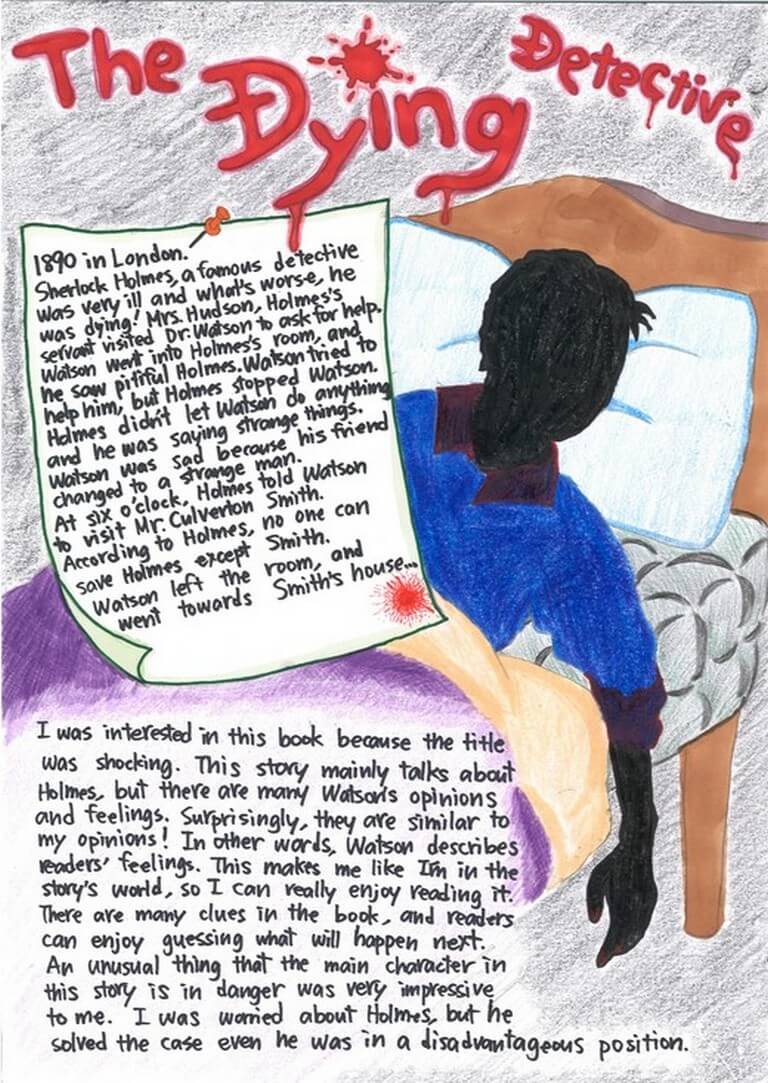 The Dying Detective
1890 in London.
Sherlock Holmes, a famous detective
was very ill and what's worse, he
was dying! Mrs. Hudson, Holmes's
servant visited Dr. Watson to ask for help.
Watson went into Holmes's room, and
he saw pitiful Holmes. Watson tried to
help him, but Holmes stopped Watson.
Holmes didn't let Watson do anything
and he was saying strange things.
Watson was sad because his friend
changed to a strange man.
At six o'clock, Holmes told Watson
to visit Mr. Culverton Smith.
According to Holmes, no one can
save Holmes except Smith.
Watson left the room, and
went towards Smith's house...
I was interested in this book because the title
was shocking. This story mainly talks about
Holmes, but there are many Watson's opinions
and feelings. Surprisingly, they are similar to
my opinions! In other words, Watson describes
readers' feelings. This makes me like I'm in the
story's world, so I can really enjoy reading it.
There are many clues in the book, and readers
can enjoy guessing what will happen next.
An unusual thing that the main character in
this story is in danger was very impressive
to me. I was worried about Holmes, but he
solved the case even he was in a disadvantageous position.